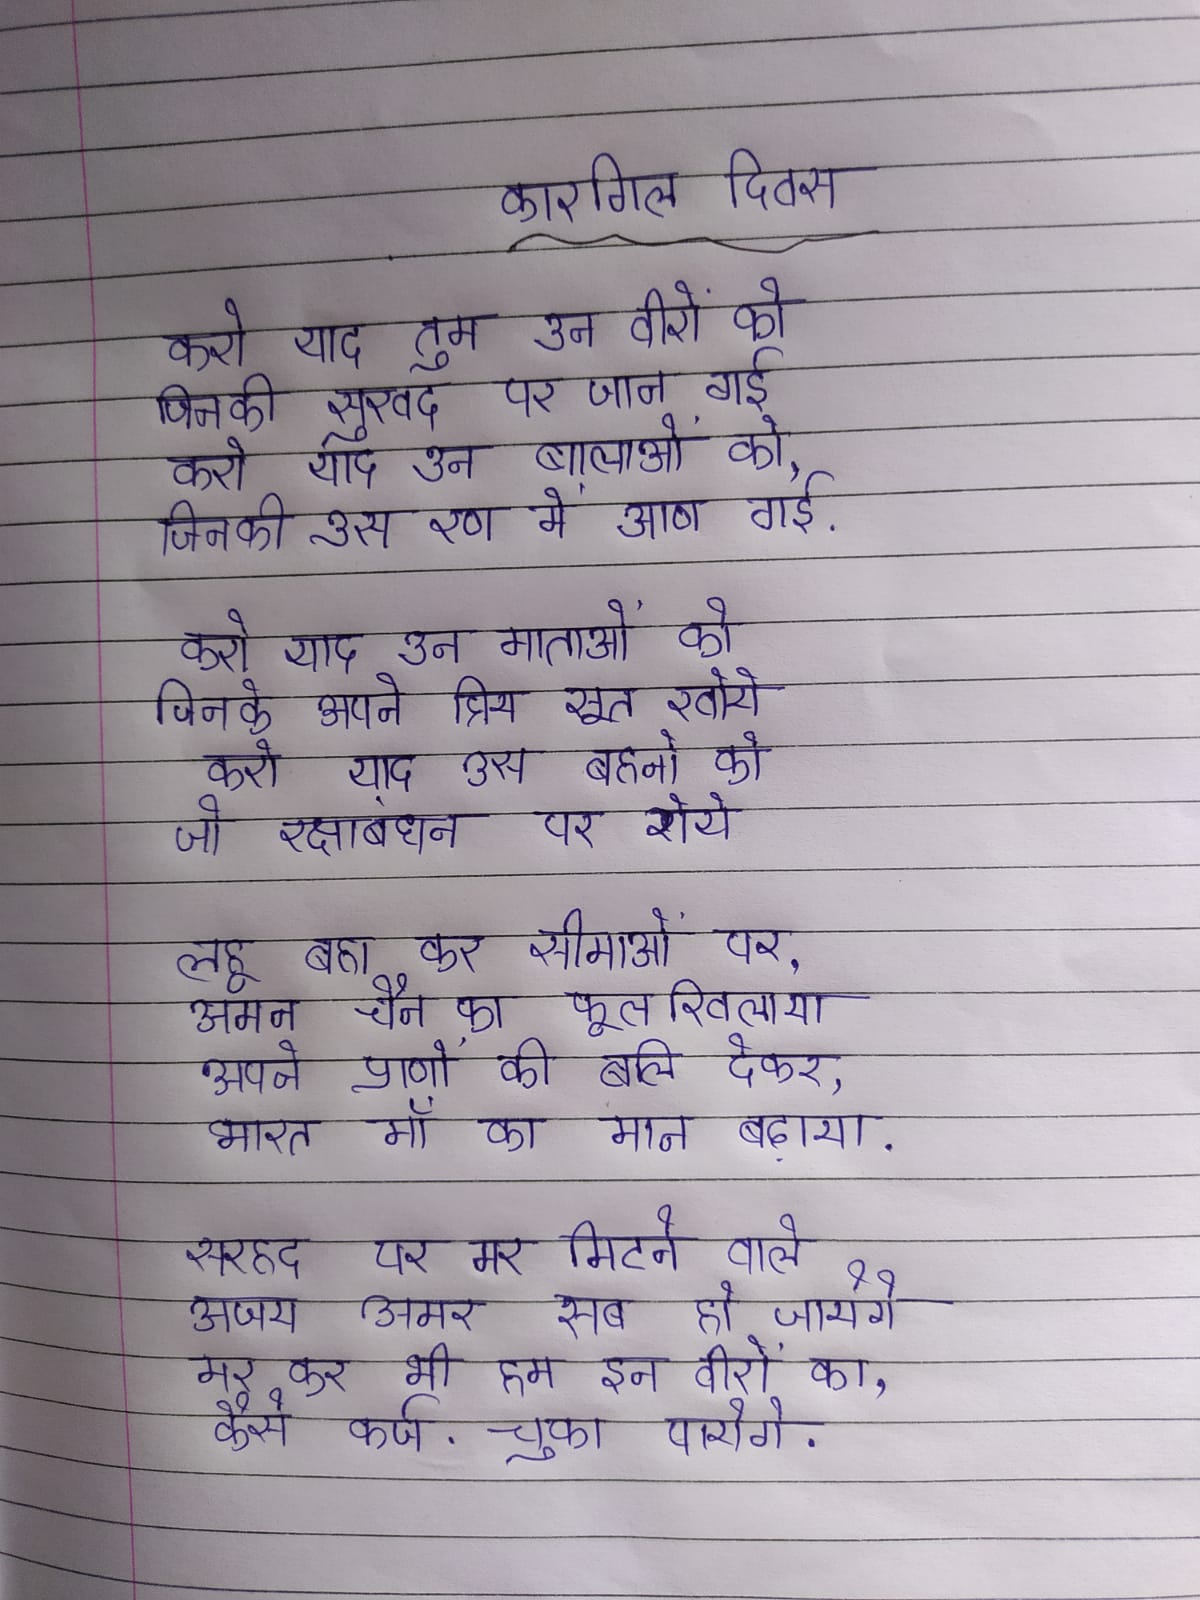 कारगिल दिवस
करो याद तुम उन वीरों को
जिनकी सुखद पर जान गई
करो याद उन बालाओं को,
जिनकी उस रण में आण गई.
करो याद उन माताओं को
जिनके अपने प्रिय सूत खोये
करो याद उस बहनों को
जो रक्षाबंधन पर रोये
लहू बहा कर सीमाओं पर,
अमन चैन का फूल खिलाया
अपने प्राणों की बलि देकर,
भारत माँ का मान बढ़ाया.
सरहद पर मर मिटने वाले
अजय अमर सब हो जायेगे
मर कर भी हम इन वीरों का,
कैसे कर्ज. चुका पायेगे.